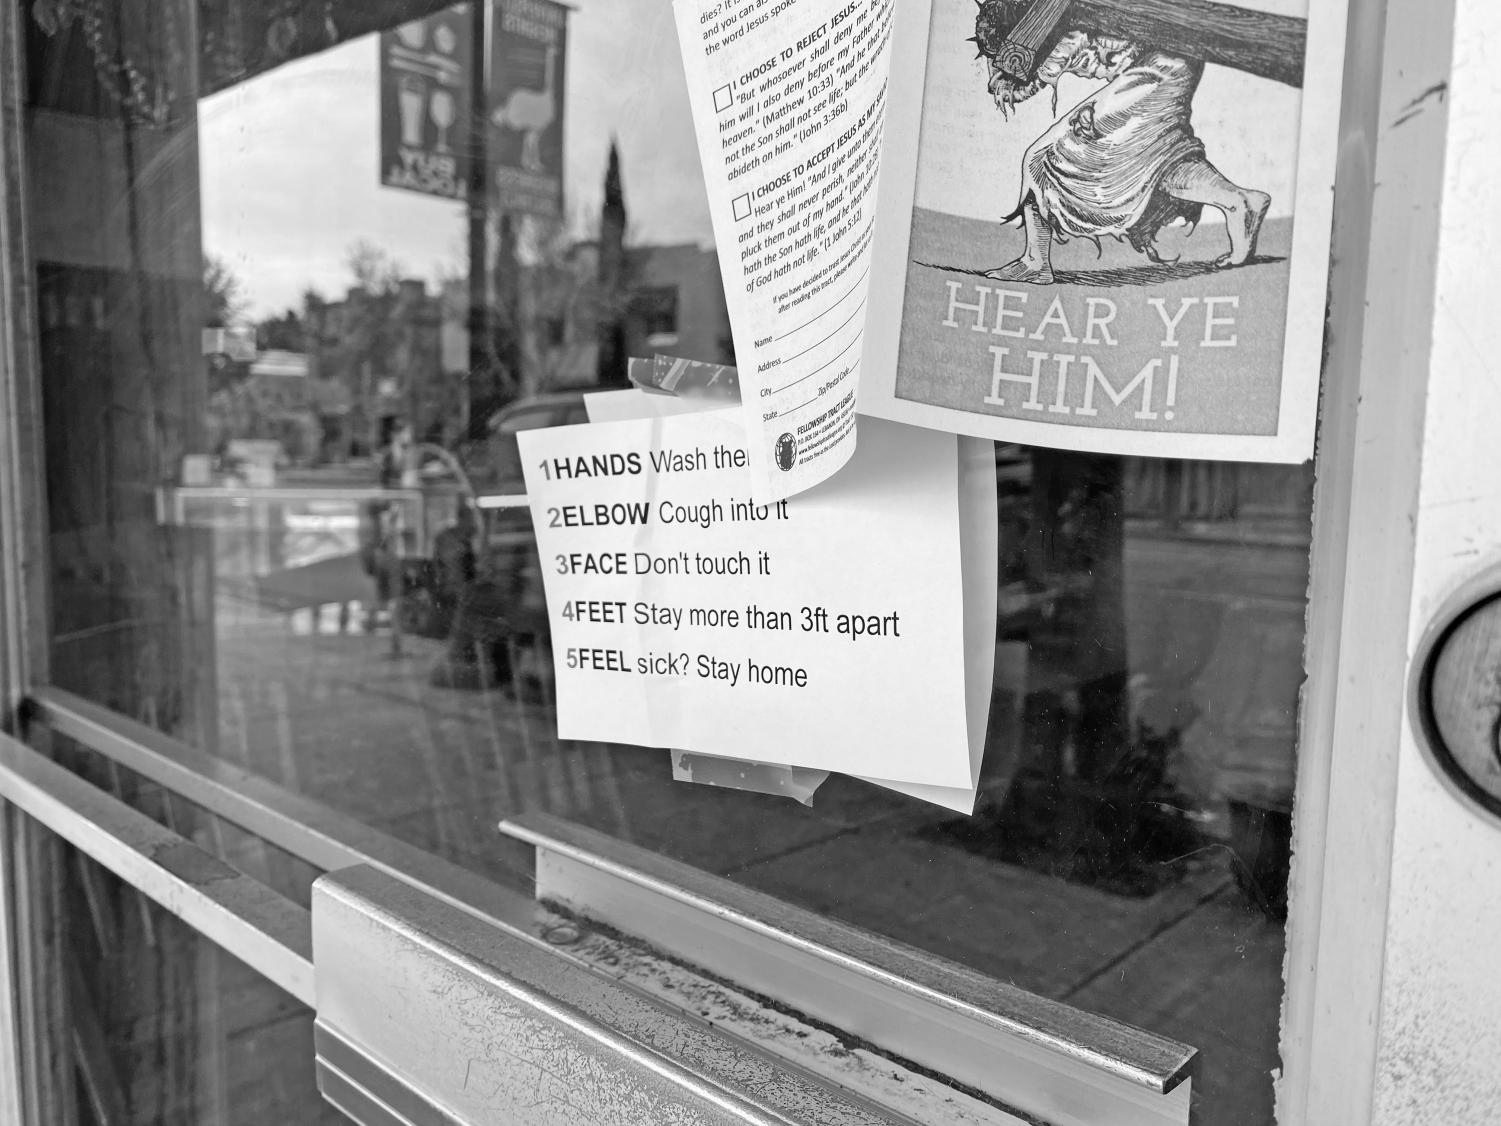 dies? It is
and you can al
the word Jesus spoke
I CHOOSE TO REJECT JESUS...
"But whosoever shall deny me be
him will I also deny before my Father whi
heaven." (Matthew 10:33) "And he that
not the Son shall not see life; but the wrath
abideth on him." (John 3:36b)
I CHOOSE TO ACCEPT JESUS AS MY SAVIO
Hear ye Him! "And I give unto them
and they shall never perish, neither shal
pluck them out of my hand." (John 10:28
hath the Son hath life, and he that hath no
of God hath not life." (1 John 5:12)
If you have decided to trust Jesus Christ as
after reading this tract, please write
Name
Address
City
State Zip/Postal Code
FELLOWSHIP TRACT LEAGUE
P.O. BOX 164 • LEBANON, OH
HEAR YE
HIM!
1HANDS Wash the
2ELBOW Cough into it
3FACE Don't touch it
4FEET Stay more than 3ft apart
5FEEL sick? Stay home
BUY
LOCAL